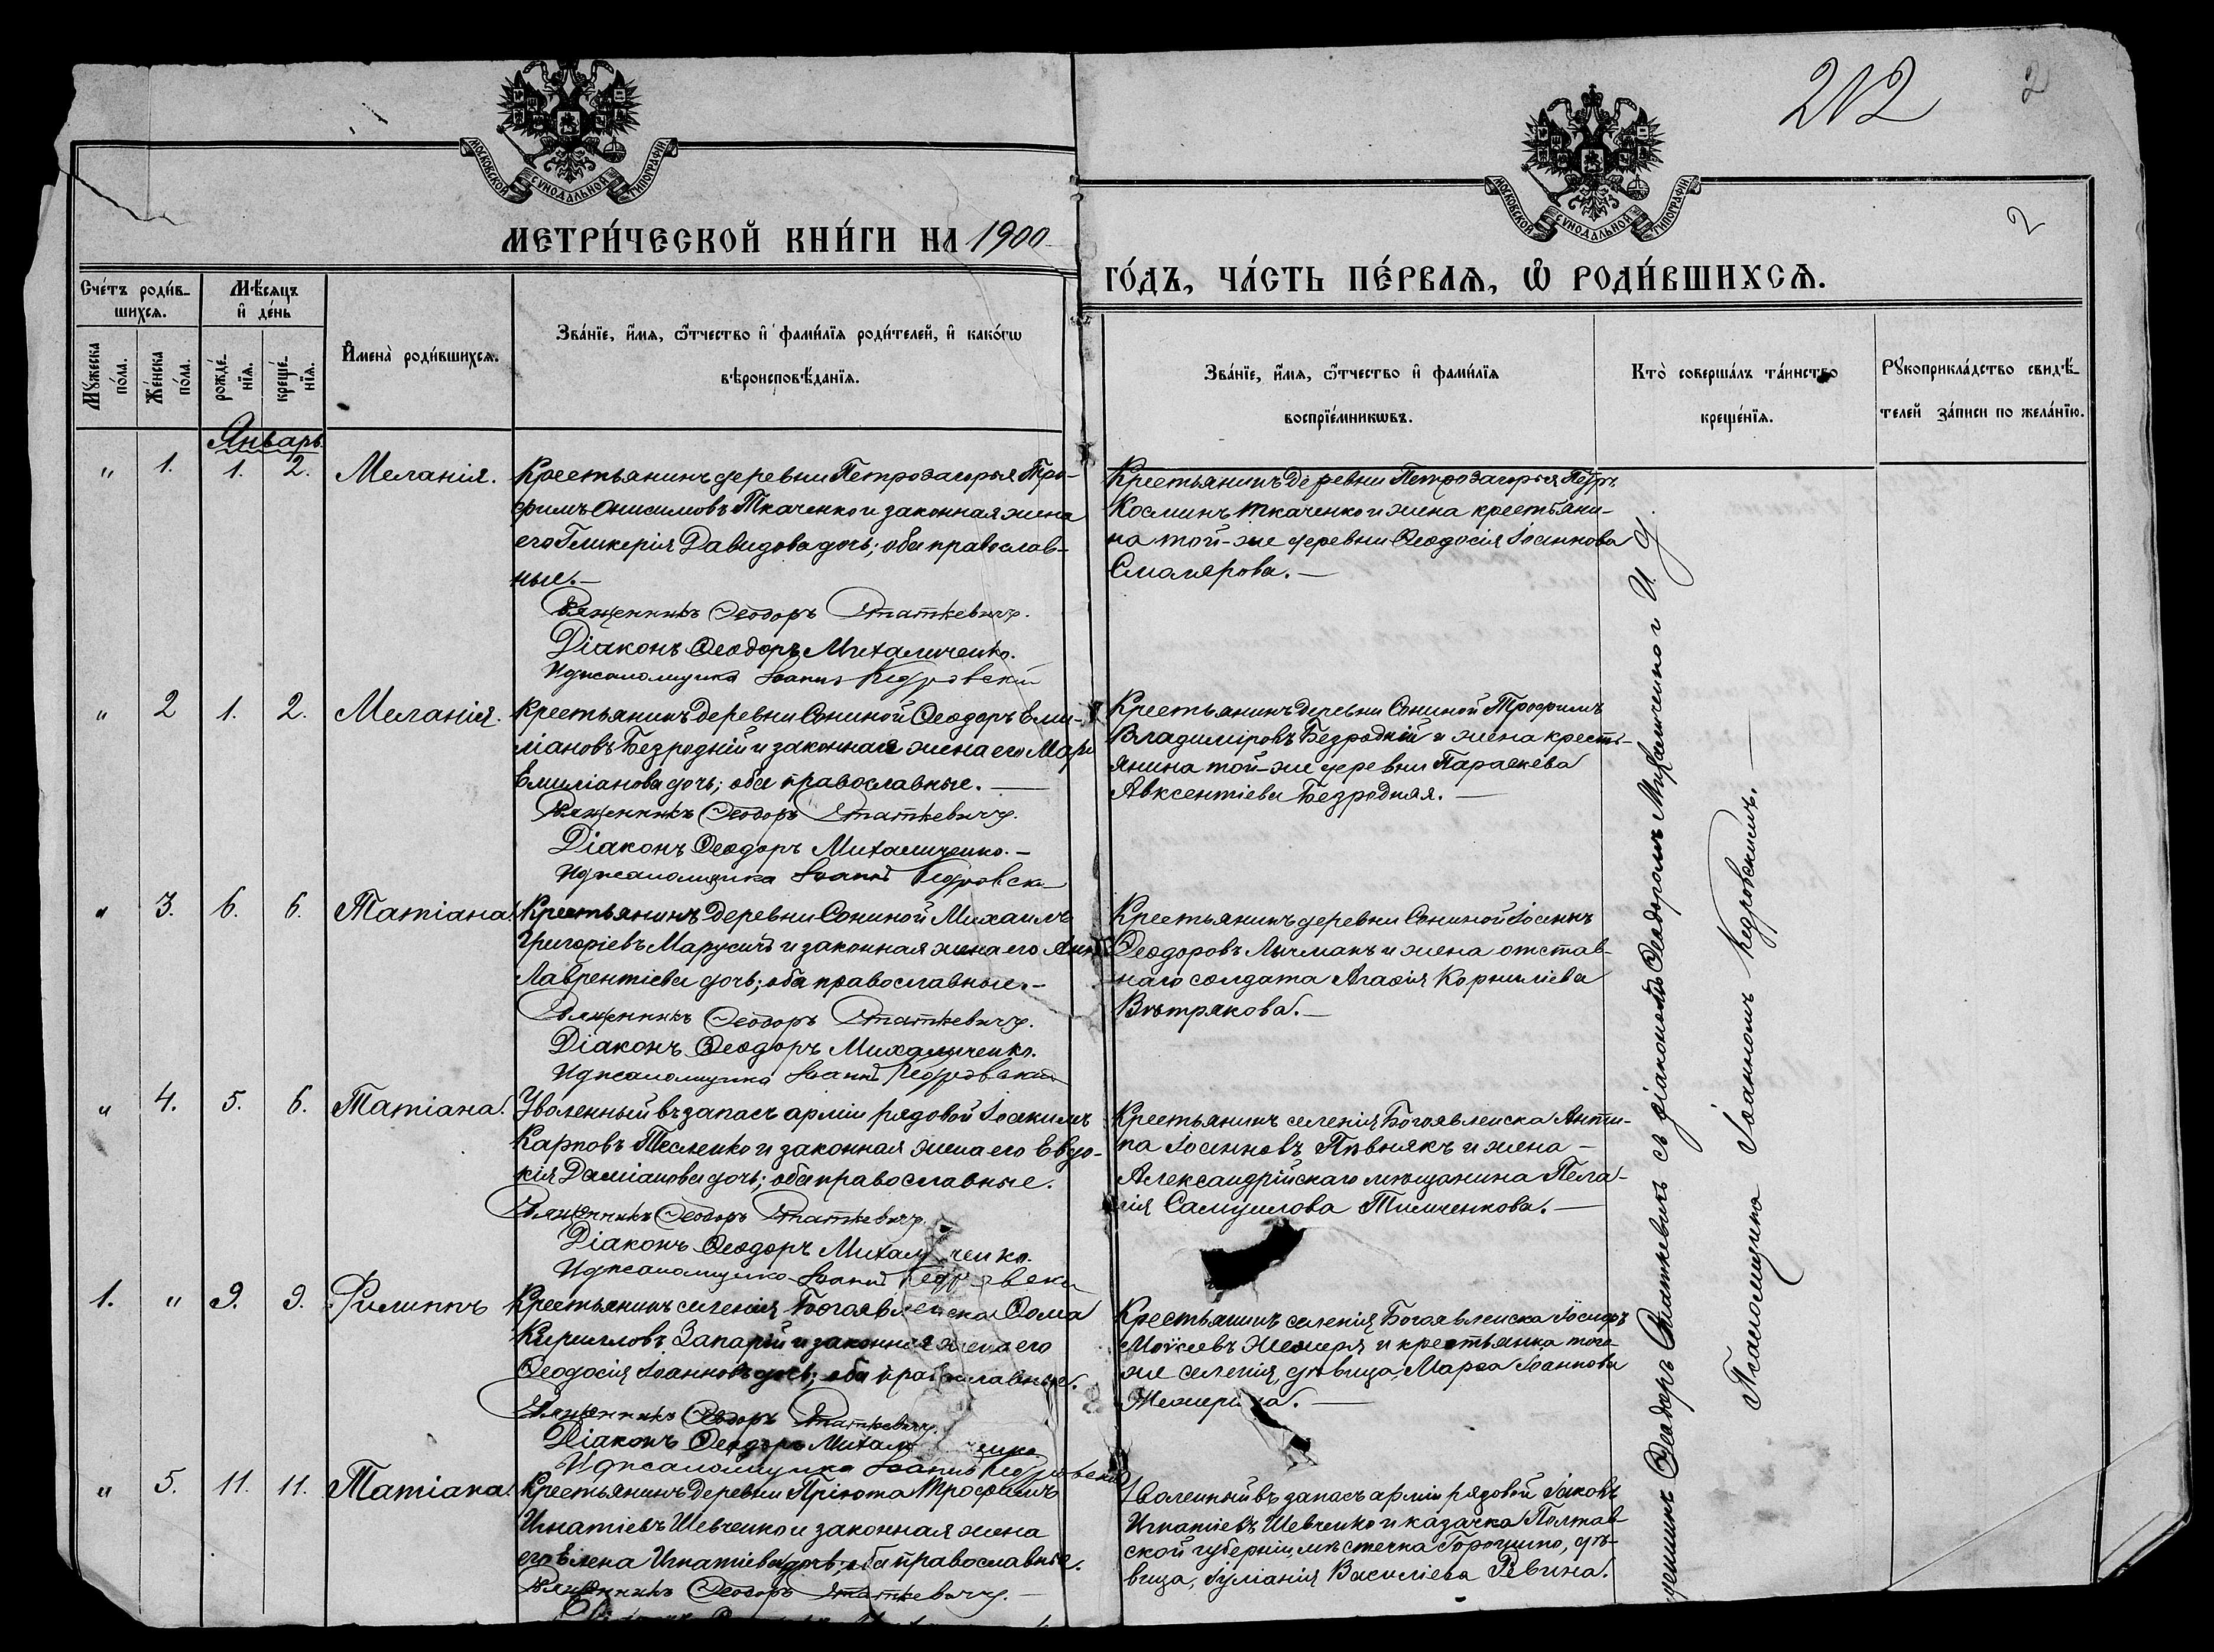 212
2
2
МОСКОВСКОЙ СѴНОДАЛЬНОЙ ТИПОГРАФІИ.
МОСКОВСКОЙ СѴНОДАЛЬНОЙ ТИПОГРАФІИ.
МЕТРИ́ЧЕСКОЙ КНИ́ГИ НА 1900
ГО́ДЪ, ЧА́СТЬ ПЕ́РВАѦ, Ѡ҆ РОДИ́ВШИХСѦ.
Сче́тъ роди́в-
шихсѧ.
Мѣ́сѧцъ
и҆ де́нь
Мꙋ́жеска
по́ла.
Же́нска
по́ла.
рожде́-
нїѧ.
креще́-
нїѧ.
И҆мена̀ роди́вшихсѧ.
Зва́нїе, и҆́мѧ, ѻ҆́тчество и҆ фамѝлїѧ роди́телей, и҆ како́гѡ
вѣроисповѣ́данїѧ.
Зва́нїе, и҆́мѧ, ѻ҆́тчество и҆ фами́лїѧ
воспрїе́мникѡвъ.
Кто̀ соверша́лъ та́инство
креще́нїѧ.
Рꙋкоприкла́дство свидѣ́-
телей за́писи по жела́нїю.
Январь.
" 1. 1. 2. Меланія.
Крестьянинъ деревни Петрозагорья Тро-
фимъ Онисимовъ Ткаченко и законная жена
его Гликерія Давидова дочь; оба православ-
ные.—
Священникъ Ѳеодоръ Статкевичъ.
Діаконъ Ѳеодоръ Михаличенко.
И. д. псаломщика Іоаннъ Кедровскій
Крестьянинъ деревни Петрозагорья Петръ
Косминъ Ткаченко и жена крестьяни-
на той-же деревни Ѳеодосія Іоаннова
Смолярова.—
" 2 1. 2. Меланія.
Крестьянинъ деревни Сониной Ѳеодоръ Еми-
ліановъ Безродній и законная жена его
Емиліанова дочь; оба православные.—
Священникъ Ѳеодоръ Статкевичъ.
Діаконъ Ѳеодоръ Михаличенко.—
И. д. псаломщика Іоаннъ Кедровскі
Крестьянинъ деревни Сониной Трофимъ
Владиміровъ Безродній и жена кресть-
янина той-же деревни Параскева
Авксентіева Безродняя.—
" 3. 6. 6. Татіана.
Крестьянинъ деревни Сониной Михаилъ
Григоріевъ Марусичъ и законная жена его
Лаврентіева дочь; оба православные.—
Священникъ Ѳеодоръ Статкевичъ.
Діаконъ Ѳеодоръ Михаличенко.
И. д. псаломщика Іоаннъ Кедровскій
Крестьянинъ деревни Сониной Іоаннъ
Ѳеодоровъ Лычманъ и жена отстав-
наго солдата Агаѳія Корниліева
Вѣтрякова.—
" 4. 5. 6. Татіана.
Уволенный въ запасъ арміи рядовой Іоакимъ
Карповъ Тесленко и законная жена его Евдо-
кія Даміанова дочь; оба православные.
Священникъ Ѳеодоръ Статкевичъ.
Діаконъ Ѳеодоръ Михаличенко.
И. д. псаломщика Іоаннъ Кедровскі
Крестьянинъ селенія Богоявленска Анти-
па Іоанновъ Пѣвнякъ и жена —
Александрійскаго мѣщанина Пела-
гія Самуилова Тимченкова.—
1. " 9. 9. Филиппъ
Крестьянинъ селенія Богоявленска Ѳома
Кирилловъ Запарій и законная жена его
Ѳеодосія Іоаннова дочь; оба православные.
Священникъ Ѳеодоръ Статкевичъ.
Діаконъ Ѳеодоръ Михаличенко
И. д. псаломщика Іоаннъ Кедровскій
Крестьянинъ селенія Богоявленска Іосифъ
Моисеевъ и крестьянка того-
же селенія, дѣвица, Марѳа Іоаннова
" 5. 11. 11. Татіана.
Крестьянинъ деревни Пріюта Трофимъ
Игнатіевъ Шевченко и законная жена
его Елена Игнатіева дочь; оба православные.
Священникъ Ѳеодоръ Статкевичъ.
Уволенный въ запасъ арміи рядовой Іаковъ
Игнатіевъ Шевченко и казачка Полтав-
ской губерніи, мѣстечка Горошино, дѣ-
вица, Іуліанія Василіева Ревина.
Священникъ Ѳеодоръ Статкевичъ съ діакономъ Ѳеодоромъ Михаличенко и И. д.
Псаломщика Іоанномъ Кедровскимъ.—